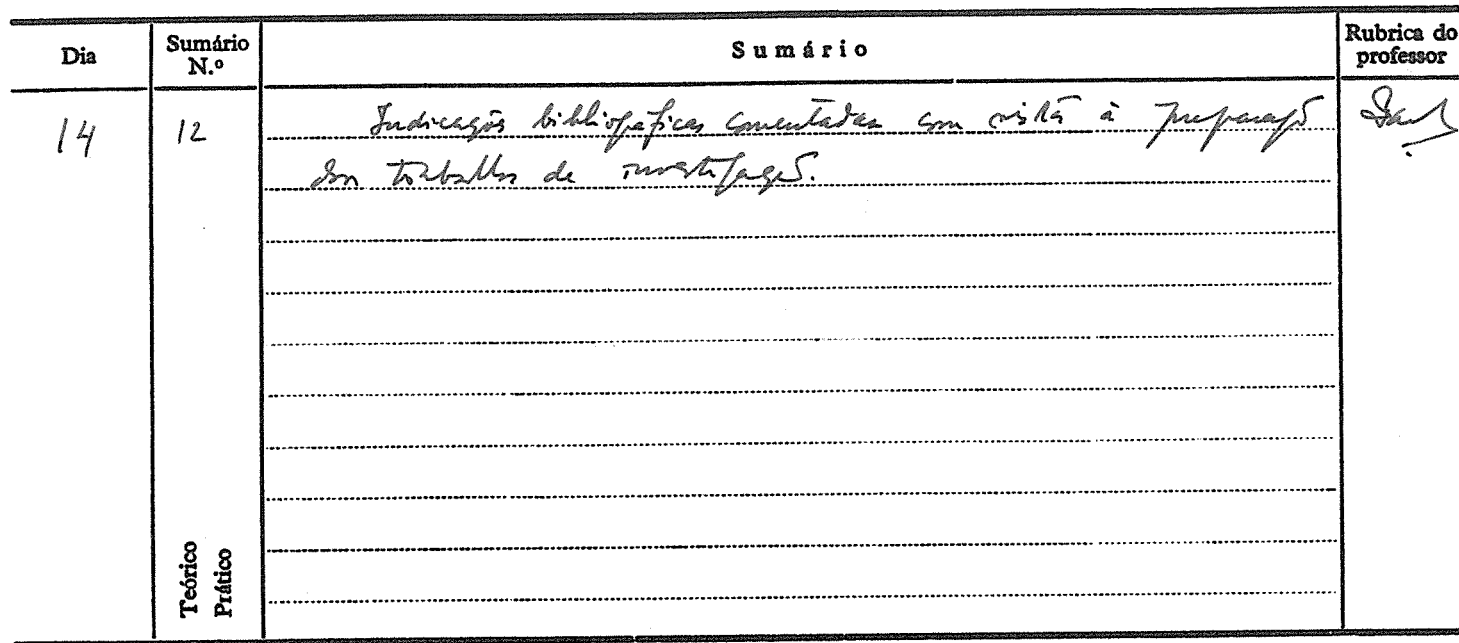 Dia
Sumário N.º
Sumário
Rubrica do professor
14
12
Indicações bibliográficas comentadas com vista à preparação
dos trabalhos de investigação.
Teórico
Prático